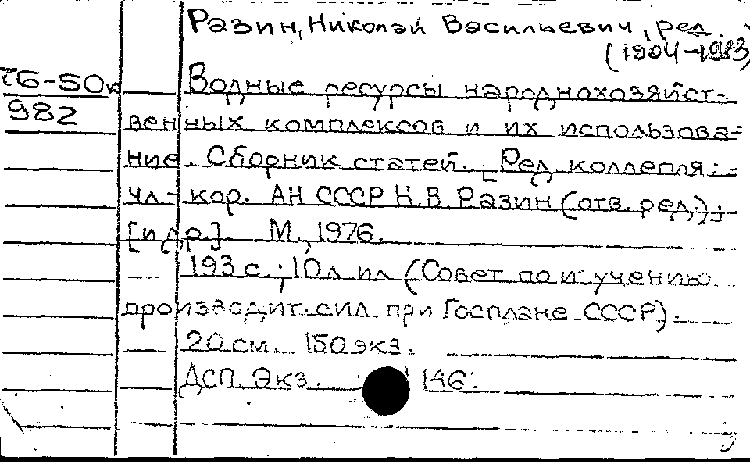 Разин, Николай Васильевич, ред.
(1904-1983)
Водные ресурсы народнохозяйст-
982
венных комплексов и их использова-
ние. Сборник статей. [Ред. коллегия:
чл.-кор. АН СССР Н.В. Разин (отв. ред.);
[и др.]. М., 1976.
193 с.; 10 л. ил (Совет по изучению
производит. сил при Госплане СССР).
20 см. 150 экз.
ДСП. Экз. 146.